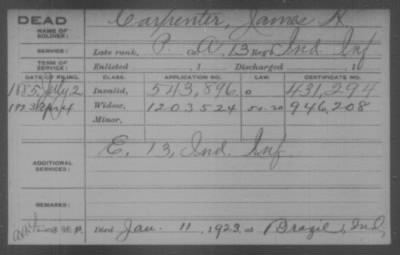 DEAD
NAME OF SOLDIER: Carpenter, James K.
SERVICE: Late rank, P. Co. A, 13 Reg't Ind. Inf
TERM OF SERVICE: Enlisted , 1 Discharged , 1
DATE OF FILING. CLASS. APPLICATION NO. LAW. CERTIFICATE NO.
1885 July 2 Invalid, 543,896 431,294
1923 Widow, 1203524 946,208
Minor,
ADDITIONAL SERVICES: E, 13, Ind. Inf
REMARKS:
Died Jan. 11, 1923, at Brazil, Ind.